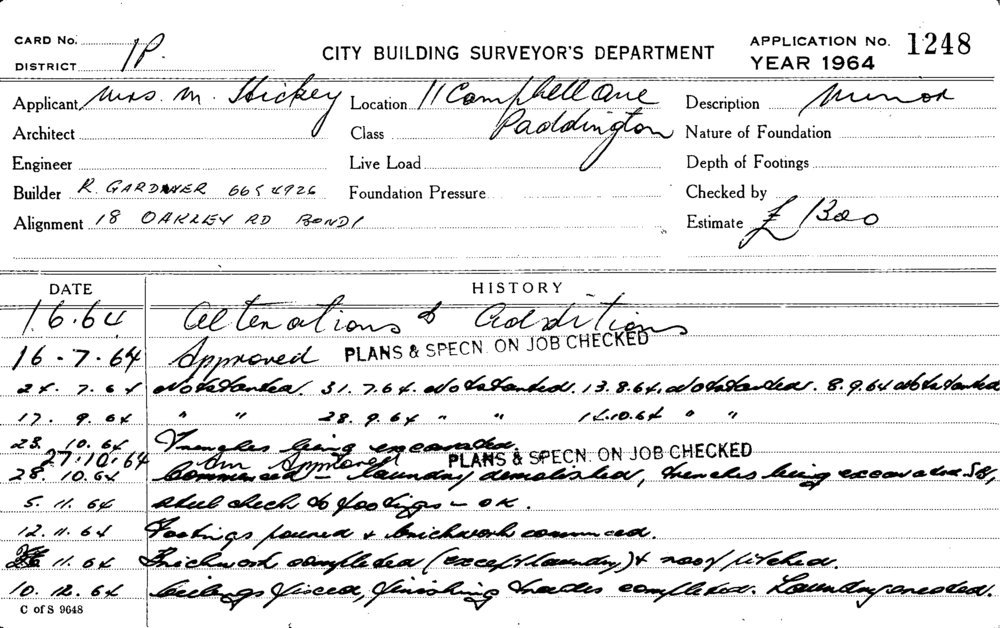 CARD No. 1P.
DISTRICT
CITY BUILDING SURVEYOR'S DEPARTMENT
APPLICATION No. 1248
YEAR 1964
Applicant Mrs. M. Hickey Location 11 Campbell Ave Description Minor
Architect Class Paddington Nature of Foundation
Engineer Live Load Depth of Footings
Builder R. GARDINER 665 4926 Foundation Pressure Checked by
Alignment 18 OAKLEY RD BONDI Estimate £ 1300
DATE HISTORY
1.6.64 Alterations & Additions
16.7.64 Approved PLANS & SPECN. ON JOB CHECKED
24.7.64 Not started. 31.7.64. Not started. 13.8.64. Not started. 8.9.64 Not started
17.9.64 " " 28.9.64 " " 14.10.64 " "
23.10.64 Trenches being excavated.
27.10.64 Am Approved PLANS & SPECN. ON JOB CHECKED
28.10.64 Commenced - laundry demolished, trenches being excavated
5.11.64 steel check to footings - OK.
12.11.64 Footings poured & brickwork commenced.
11.64 Brickwork completed (except laundry) & roof pitched.
10.12.64 Ceilings fixed, finishing trades completed. Laundry erected.
C of S 9648